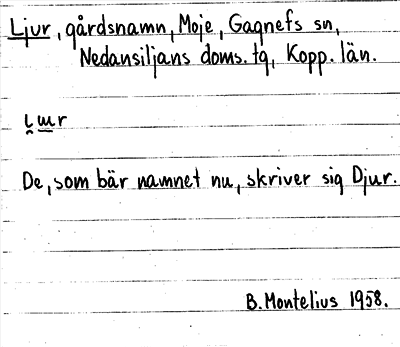 Ljur, gårdsnamn, Moje, Gagnefs sn,
Nedansiljans doms.tg, Kopp. län.
De, som bär namnet nu, skriver sig Djur.
B. Montelius 1958.